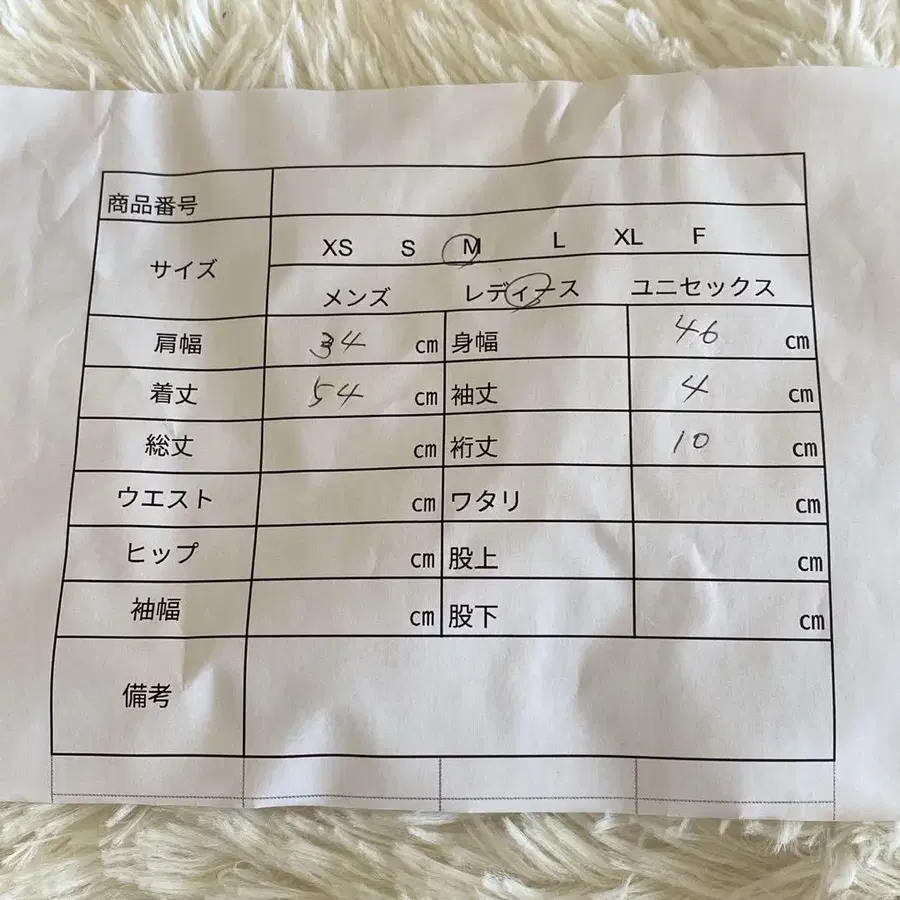 商品番号
サイズ XS S M L XL F
メンズ レディース ユニセックス
肩幅 34 cm 身幅 46 cm
着丈 54 cm 袖丈 4 cm
総丈 cm 裄丈 10 cm
ウエスト cm ワタリ cm
ヒップ cm 股上 cm
袖幅 cm 股下 cm
備考